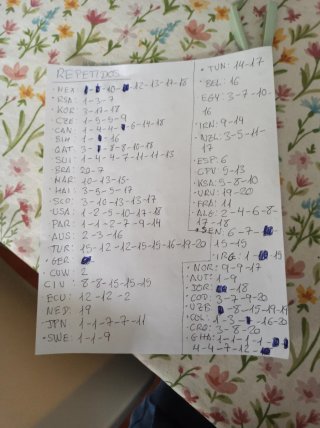 REPETIDOS
· MEX 1- -10- -12-13-17-18
· RSA: 1-3-7
· KOR: 3-17-18
· CZE: 1-5-5-9
· CAN: 1-4-4- -6-14-18
· SUI: 1- -16
· QAT: 3- -8-8-10-18
· SUI: 1-4-4-7-11-11-13
· BRA: 20-7
· MAR: 10-13-15-
· HAI: 3-5-5-17
· SCO: 3-10-13-13-17
· USA: 1-2-5-10-17-18
· PAR: 1-1-2-7-9-14
· AUS: 2-3-16
· TUR: 15-12-12-15-15-16-19-20
· GER
· CUW: 2
· CIV: 8-8-15-15-19
· ECU: 12-12-2
· NED: 19
· JPN: 1-1-7-7-11
· SWE: 1-1-9
· TUN: 14-17
· BEL: 16
· EGY: 3-7-10-
16
· IRN: 9-14
· NZL: 3-5-11-
17
· ESP: 6
· CPV: 5-13
· KSA: 5-8-10
· URU: 19-20
· FRA: 11
· ALG: 2-4-6-8-
17-18
· SEN: 6-7-
15-15
· IRQ: 1- -15
· NOR: 9-9-17
· AUT: 1-9
· JOR: -18
· COD: 3-7-9-20
· UZB: -8-15-19-19
· COL: 1-3- -16-20
· CRO: 3-8-20
· GHA: 1-1-1-1-
4-4-7-12-